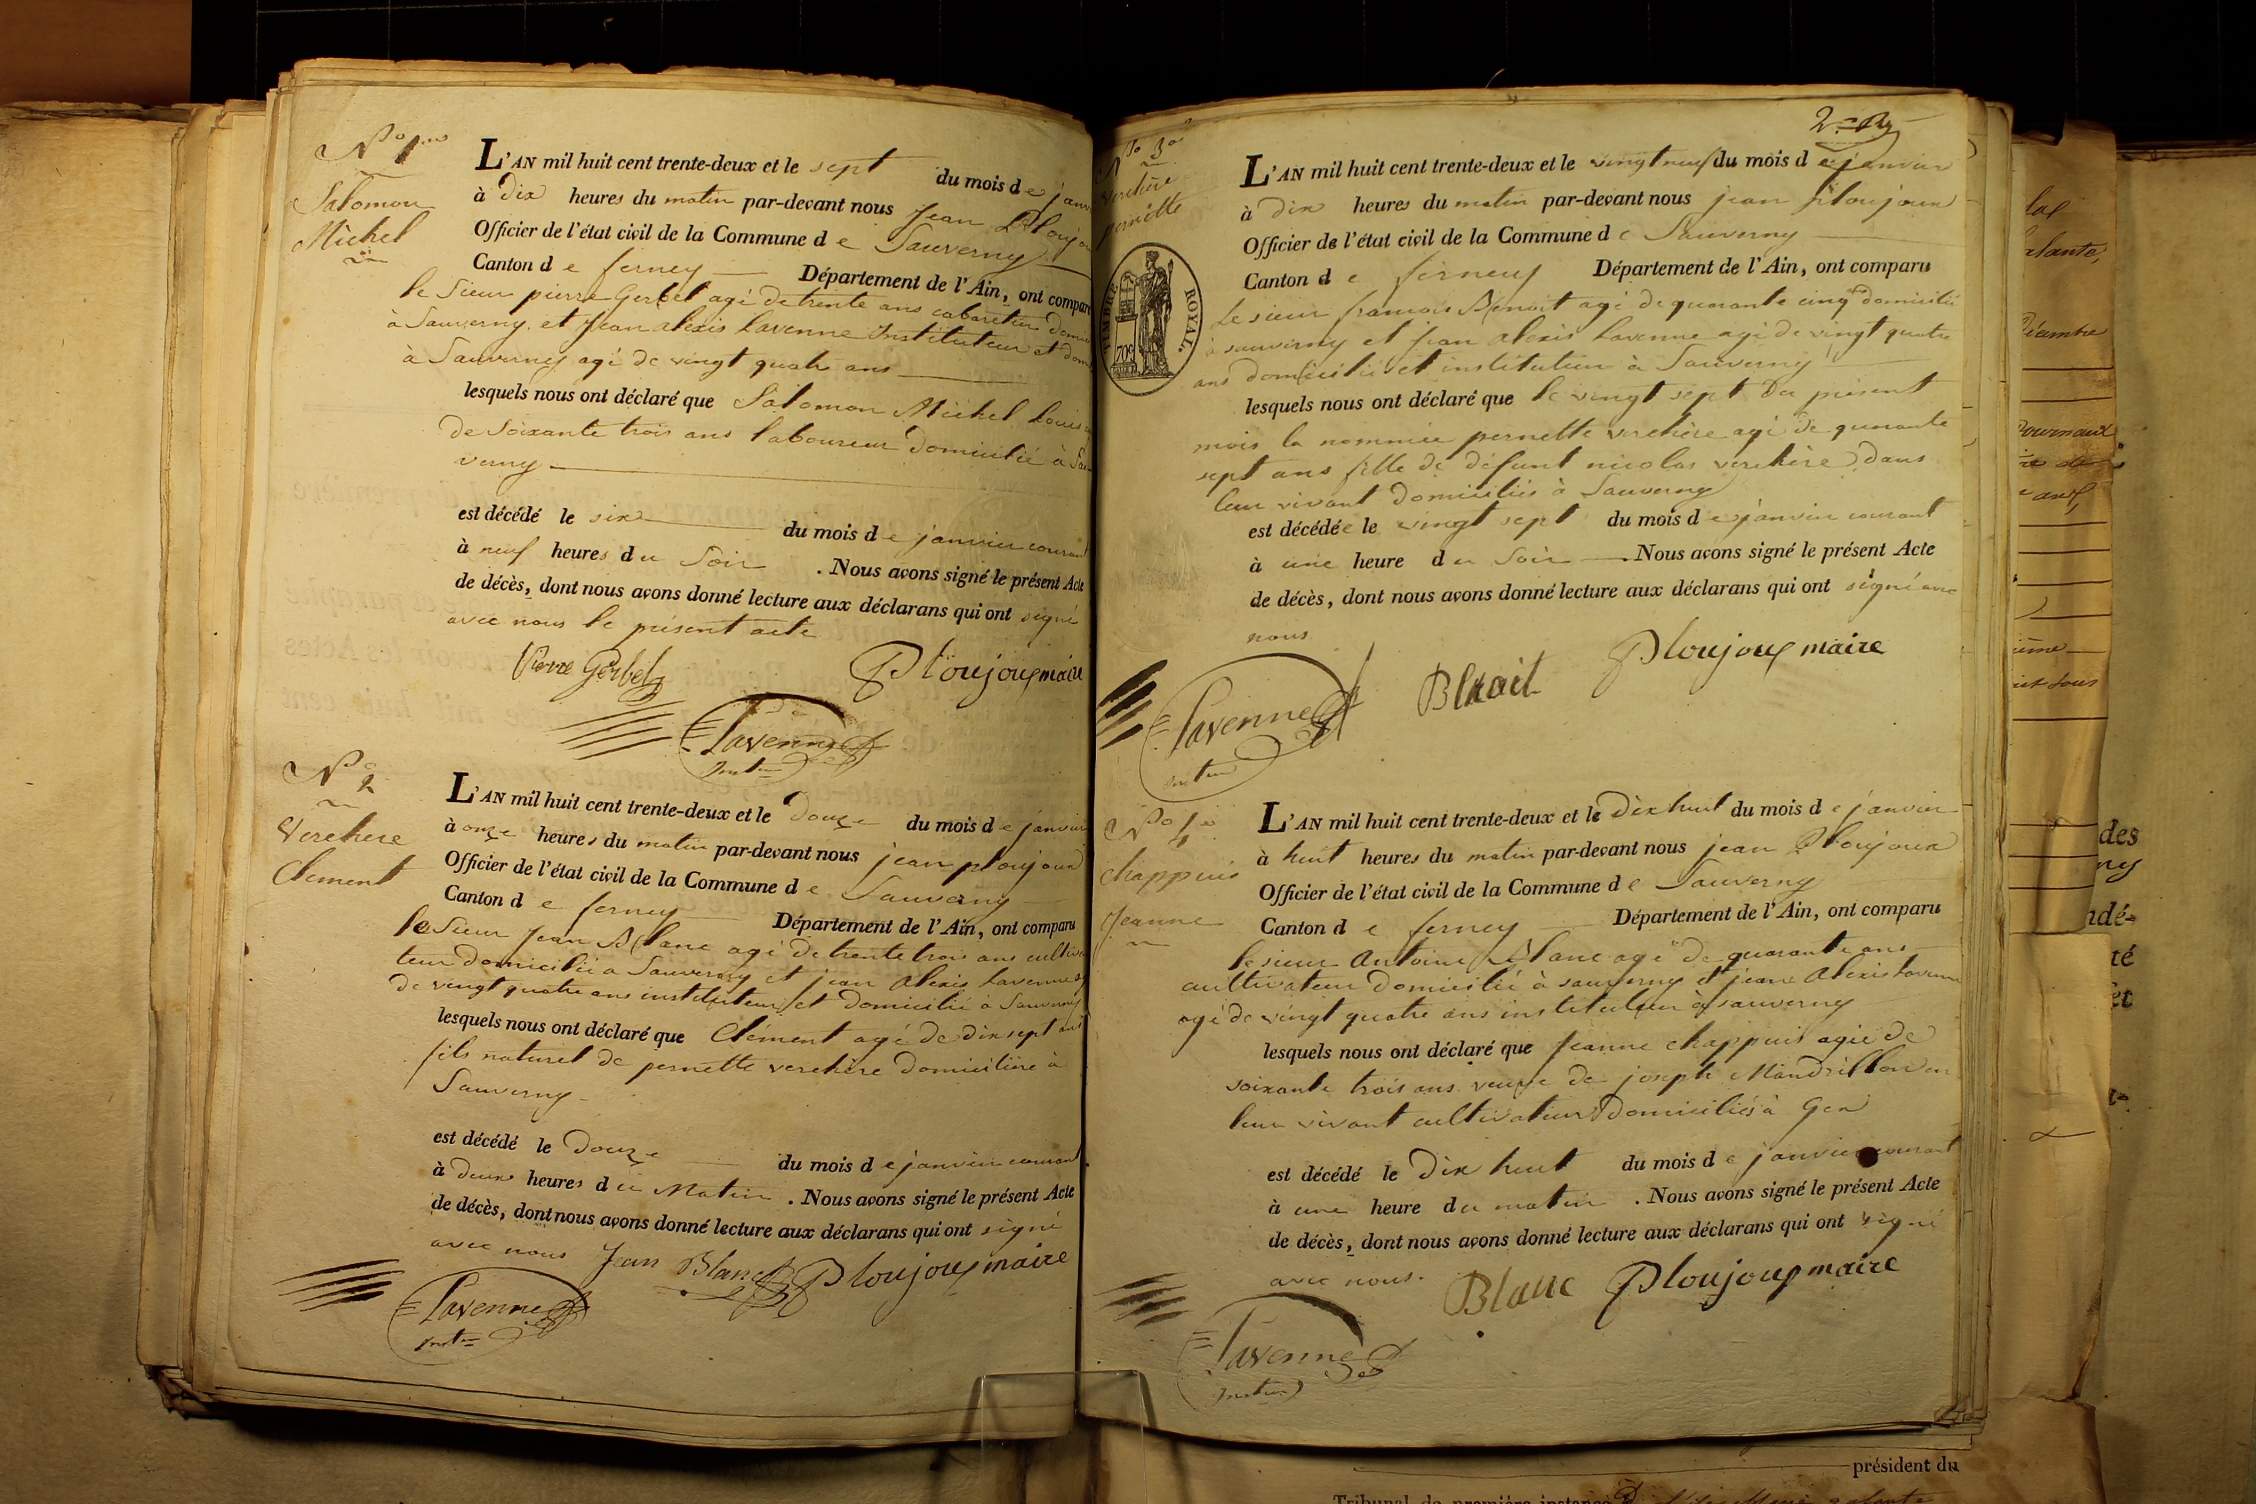 N° 1
Salomon
Michel
L'AN mil huit cent trente-deux et le sept du mois de janv
à Dix heures du matin par-devant nous Jean Ploujou
Officier de l'état civil de la Commune de Sauverny
Canton de ferney Département de l'Ain, ont comparu
le Sieur pierre Gerbel agé de trente ans cabaretier domi
à Sauverny et Jean alexis Lavenne Instituteur et dom
à Sauverney agé de vingt quatre ans
lesquels nous ont déclaré que Salomon Michel Louis
de Soixante trois ans laboureur Domicilié à Sau
verny
est décédé le six du mois de janvier courant
à neuf heures du Soir . Nous avons signé le présent Acte
de décès, dont nous avons donné lecture aux déclarans qui ont signé
avec nous le présent acte
Pierre Gerbel Ploujoux maire
Lavenne
Inst
N° 2
Verchere
Clement
L'AN mil huit cent trente-deux et le Douze du mois de janvier
à onze heures du matin par-devant nous jean ploujoux
Officier de l'état civil de la Commune de Sauverny
Canton de ferney Département de l'Ain, ont comparu
le Sieur Jean Blanc agé de trente trois ans cultiva
teur domicilié a Sauverny et jean Alexis Lavenne
de vingt quatre ans instituteur et domicilié à Sauverny
lesquels nous ont déclaré que Clément agé de dix sept ans
fils naturel de pernette verchère domiciliée à
Sauverny
est décédé le Douze du mois de janvier courant
à deux heures du Matin . Nous avons signé le présent Acte
de décès, dont nous avons donné lecture aux déclarans qui ont signé
avec nous Jean Blanc Ploujoux maire
Lavenne
Inst
2
N° 3
Verchère
pernette
TIMBRE ROYAL.
70c
L'AN mil huit cent trente-deux et le vingt neuf du mois de janvier
à Dix heures du matin par-devant nous jean Ploujoux
Officier de l'état civil de la Commune de Sauverny
Canton de ferney Département de l'Ain, ont comparu
Le sieur francois Benoit agé de quarante cinq ans domicilié
à sauverny et jean alexis Lavenne agé de vingt quatre
ans domicilié et instituteur à Sauverny
lesquels nous ont déclaré que le vingt sept Du présent
mois la nommée pernette verchère agé de quarante
sept ans fille de défunt nicolas verchère Dans
leur vivant domiciliés à Sauverny
est décédée le vingt sept du mois de janvier courant
à une heure du Soir . Nous avons signé le présent Acte
de décès, dont nous avons donné lecture aux déclarans qui ont signé avec
nous
Ploujoux maire
Lavenne
N° 4
Chappuis
Jeanne
L'AN mil huit cent trente-deux et le Dix huit du mois de janvier
à huit heures du matin par-devant nous jean Ploujoux
Officier de l'état civil de la Commune de Sauverny
Canton de ferney Département de l'Ain, ont comparu
le sieur Antoine Blanc agé de quarante ans
cultivateur Domicilié à sauverny et jean Alexis Lavenne
agé de vingt quatre ans instituteur à sauverny
lesquels nous ont déclaré que Jeanne chappuis agée de
soixante trois ans veuve de joseph Mandrillon en
leur vivant cultivateur domiciliés à Gex
est décédé le Dix huit du mois de janvier courant
à une heure du matin . Nous avons signé le présent Acte
de décès, dont nous avons donné lecture aux déclarans qui ont signé
avec nous. Blanc Ploujoux maire
Lavenne
président du
Tribunal de première instance